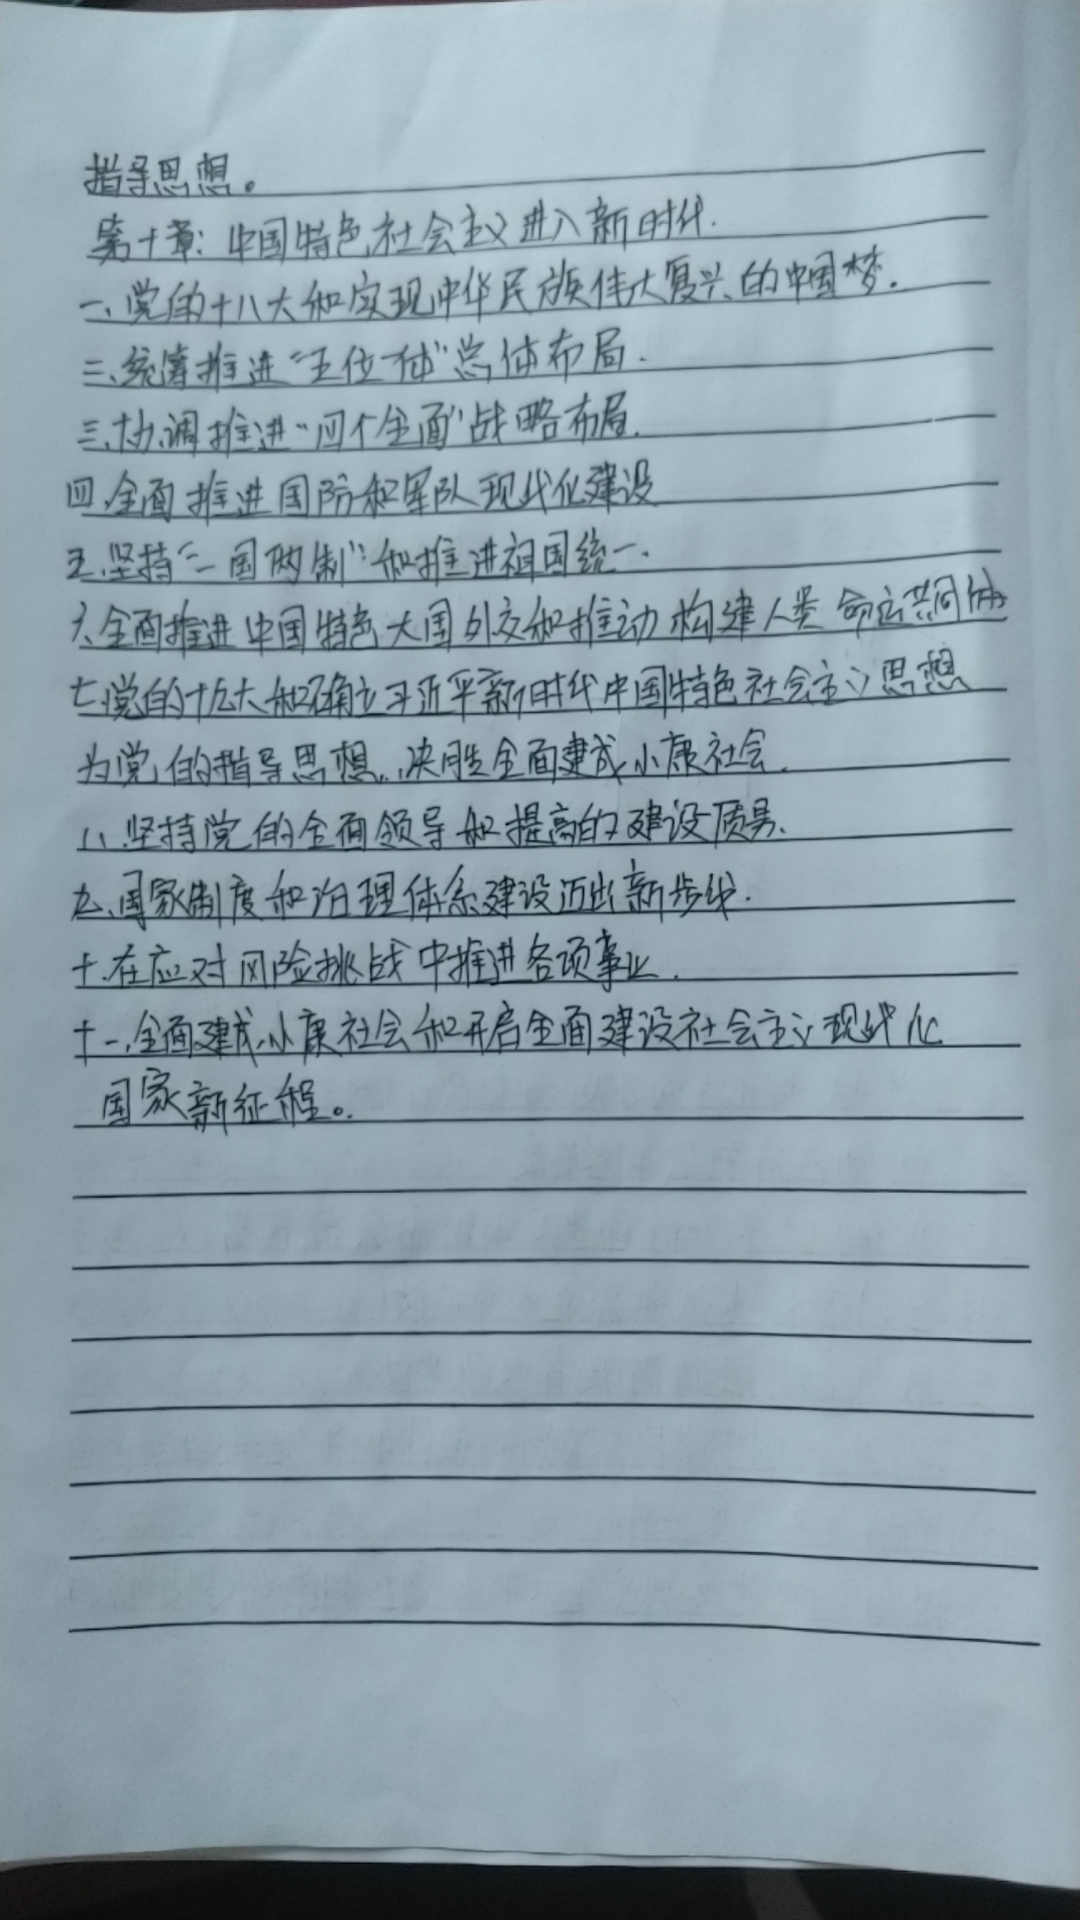 指导思想。
第十章：中国特色社会主义进入新时代.
一、党的十八大和实现中华民族伟大复兴的中国梦.
二、统筹推进"五位一体"总体布局.
三.协调推进"四个全面"战略布局.
四.全面推进国防和军队现代化建设
五.坚持"一国两制"和推进祖国统一.
六.全面推进中国特色大国外交和推动构建人类命运共同体
七.党的十九大和确立习近平新时代中国特色社会主义思想
为党的指导思想..决胜全面建成小康社会.
八.坚持党的全面领导和提高的建设质量.
九、国家制度和治理体系建设迈出新步伐.
十.在应对风险挑战中推进各项事业.
十一.全面建成小康社会和开启全面建设社会主义现代化
国家新征程。.